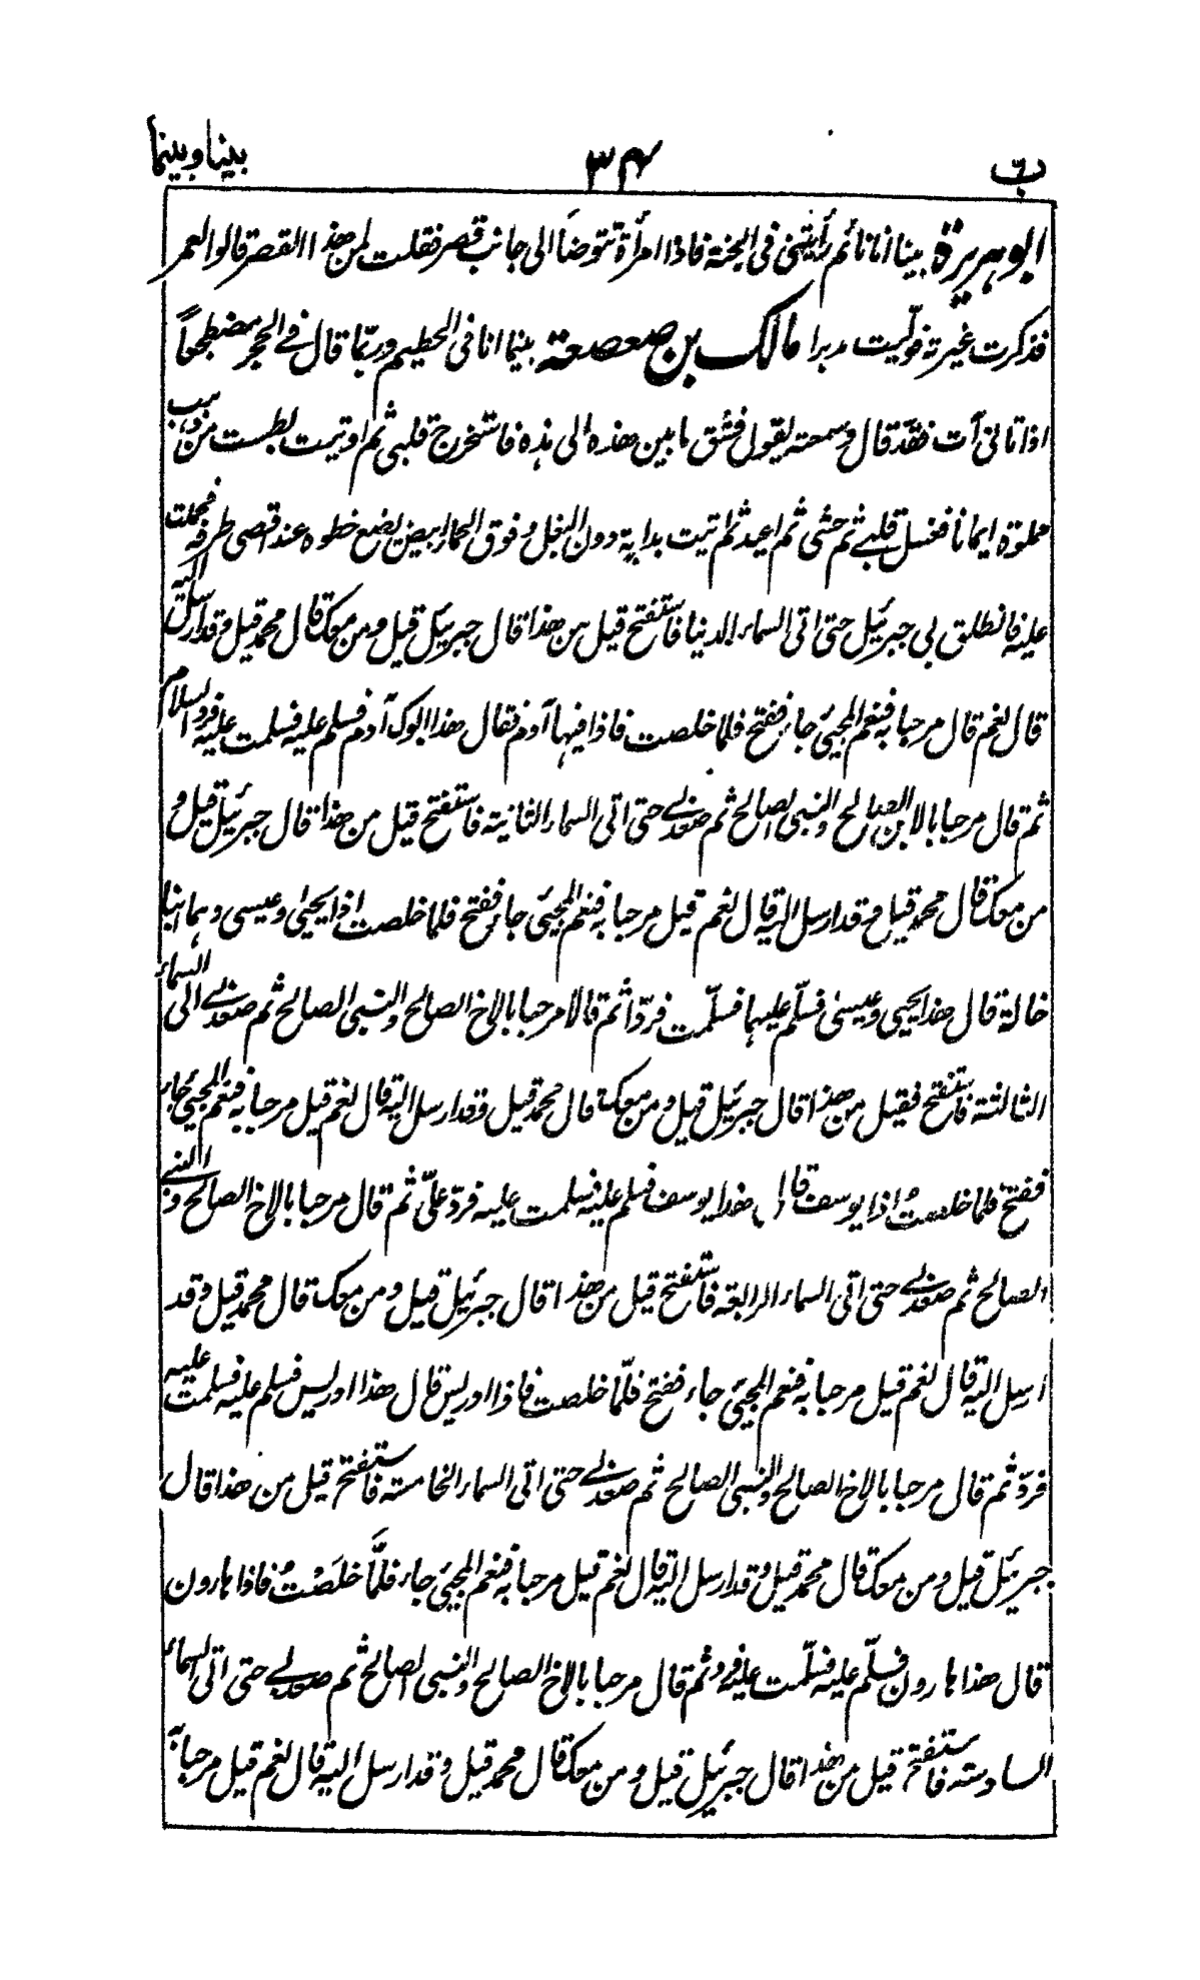 ب ٣٤ بينا وبينما
ابو هريرة بينا انا نائم رأيتني في الجنة فاذا امرأة تتوضأ الى جانب قصر فقلت لمن هذا القصر قالوا لعمر
فذكرت غيرته فولّيت مدبرا مالك بن صعصعة بينما انا في الحطيم وربّما قال في الحجر مضطجعاً
اذ اتاني آت فقدّ قال وسمعته يقول فشق ما بين هذه الى هذه فاستخرج قلبي ثم اوتيت بطست من ذهب
مملوّة ايمانا فغسل قلبي ثم حشى ثم اعيد ثم اتيت بدابة دون البغل وفوق الحمار ابيض يضع خطوه عند اقصى طرفه فحملت
عليه فانطلق بي جبرئيل حتى اتى السماء الدنيا فاستفتح قيل من هذا قال جبرئيل قيل ومن معك قال محمد قيل وقد ارسل اليه
قال نعم قال مرحبا به فنعم المجيئ جاء ففتح فلما خلصت فاذا فيها آدم فقال هذا ابوك آدم فسلم عليه فسلمت عليه فرد السلام
ثم قال مرحبا بالابن الصالح والنبي الصالح ثم صعد بي حتى اتى السماء الثانية فاستفتح قيل من هذا قال جبرئيل قيل و
من معك قال محمد قيل وقد ارسل اليه قال نعم قيل مرحبا به فنعم المجيئ جاء ففتح فلما خلصت اذا يحيى وعيسى وهما ابنا
خالة قال هذا يحيى وعيسى فسلّم عليهما فسلّمت فردّا ثم قالا مرحبا بالاخ الصالح والنبي الصالح ثم صعد بي الى السماء
الثالثة فاستفتح فقيل من هذا قال جبرئيل قيل ومن معك قال محمد قيل وقد ارسل اليه قال نعم قيل مرحبا به فنعم المجيئ جاء
ففتح فلما خلصت اذا يوسف قال هذا يوسف فسلم عليه فسلمت عليه فردّ علىّ ثم قال مرحبا بالاخ الصالح والنبي
الصالح ثم صعد بي حتى اتى السماء الرابعة فاستفتح قيل من هذا قال جبرئيل قيل ومن معك قال محمد قيل وقد
ارسل اليه قال نعم قيل مرحبا به فنعم المجيئ جاء ففتح فلمّا خلصت فاذا ادريس قال هذا ادريس فسلم عليه فسلمت عليه
فردّ ثم قال مرحبا بالاخ الصالح والنبي الصالح ثم صعد بي حتى اتى السماء الخامسة فاستفتح قيل من هذا قال
جبرئيل قيل ومن معك قال محمد قيل وقد ارسل اليه قال نعم قيل مرحبا به فنعم المجيئ جاء فلمّا خلصت فاذا هارون
قال هذا هارون فسلّم عليه فسلّمت عليه فرد ثم قال مرحبا بالاخ الصالح والنبي الصالح ثم صعد بي حتى اتى السماء
السادسة فاستفتح قيل من هذا قال جبرئيل قيل ومن معك قال محمد قيل وقد ارسل اليه قال نعم قيل مرحبا به